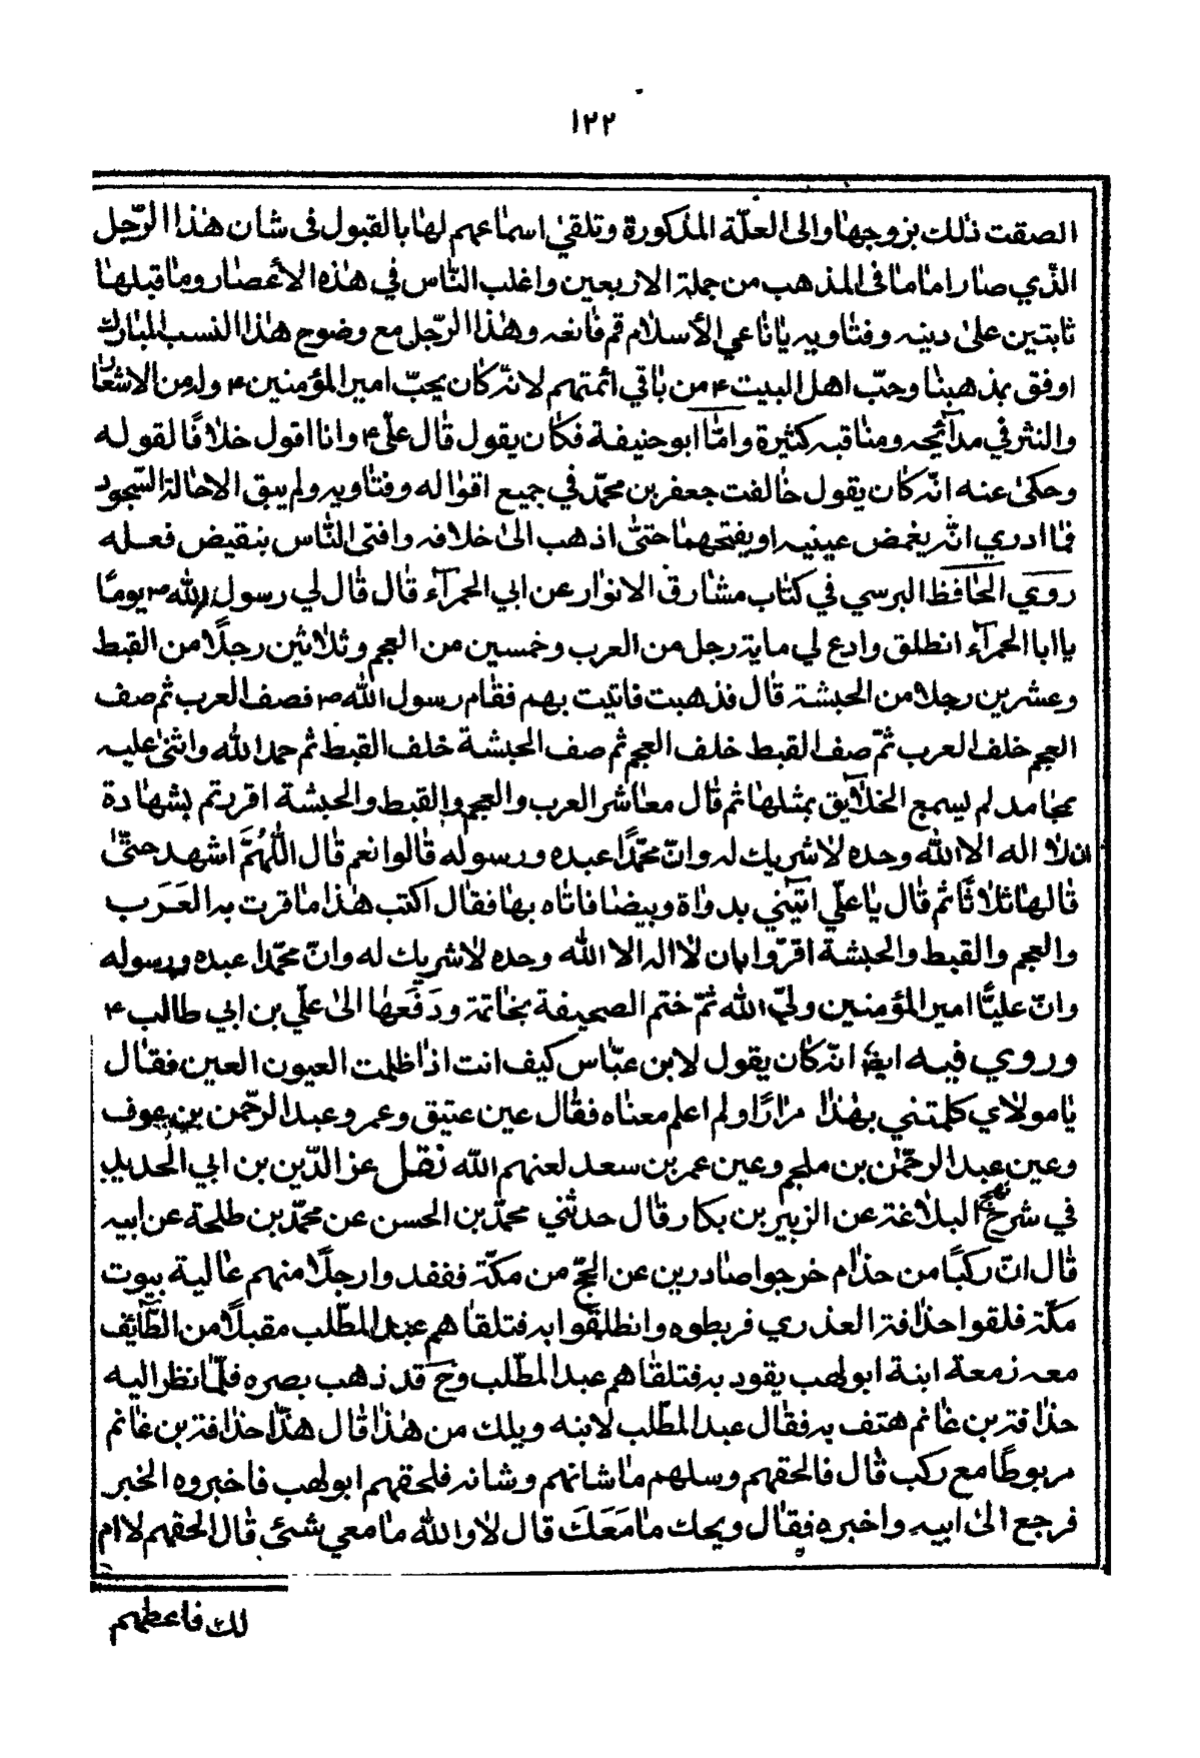 ١٢٢
الصقت ذلك بزوجها والى العلّة المذكورة وتلقي اسماعهم لها بالقبول فى شان هذا الرّجل
الّذي صار اماما فى المذهب من جملة الاربعين واغلب النّاس في هذه الأعصار وما قبلها
ثابتين على دينه وفتاويه يا ناعي الأسلام قم فانعه وهذا الرّجل مع وضوح هذا النسب المبارك
اوفق بمذهبنا وحبّ اهل البيت ۴ من باقي ائمتهم لانّه كان يحبّ امير المؤمنين ۴ وله من الاشعار
والنثر في مدآئحه ومناقبه كثيرة وامّا ابو حنيفة فكان يقول قال علّي ۴ وانا اقول خلافًا لقوله
وحكى عنه انّه كان يقول خالفت جعفر بن محمّد في جميع اقواله وفتاويه ولم يبق الا حالة السّجود
فما ادري انّه يغمض عينيه او يفتحهما حتّى اذهب الى خلافه وافتى النّاس بنقيض فعله
روي الحافظ البرسي في كتاب مشارق الانوار عن ابي الحمرآء قال قال لي رسول الله ص يومًا
يا ابا الحمرآء انطلق وادع لي ماية رجل من العرب وخمسين من العجم وثلاثين رجلًا من القبط
وعشرين رجلا من الحبشة قال فذهبت فاتيت بهم فقام رسول الله ص فصف العرب ثم صف
العجم خلف العرب ثمّ صف القبط خلف العجم ثم صف الحبشة خلف القبط ثم حمد الله واثنى عليه
بمحامد لم يسمع الخلآيق بمثلها ثم قال معاشر العرب والعجم والقبط والحبشة اقررتم بشهادة
ان لا اله الا الله وحده لا شريك له وانّ محمّدًا عبده ورسوله قالوا نعم قال اللّهُمَّ اشهد حتّى
قالها ثلاثًا ثم قال يا علّي ائتيني بدواة وبيضا فاتاه بها فقال اكتب هذا ما قرت به العَرَب
والعجم والقبط والحبشة اقرّوا بان لا اله الا الله وحده لا شريك له وانّ محمّدا عبده ورسوله
وانّ عليًّا امير المؤمنين وليّ الله ثمّ ختم الصحيفة بخاتمة ودَفَعها الى علّي بن ابي طالب ۴
وروي فيه ايضا انّه كان يقول لابن عبّاس كيف انت اذا ظلمت العيون العين فقال
يا مولاي كلمتني بهذا مرارًا ولم اعلم معناه فقال عين عتيق وعمر وعبد الرحّمن بن عوف
وعين عبد الرحمّن بن ملجم وعين عمر بن سعد لعنهم الله نقل عز الدّين بن ابي الحديد
في شرح نهج البلاغة عن الزبير بن بكار قال حدثني محمّد بن الحسن عن محمّد بن طلحة عن ابيه
قال انّ ركبًا من حذام خرجوا صادرين عن الحجّ من مكّة ففقدوا رجلًا منهم عالية بيوت
مكّة فلقوا حذافة العذري فربطوه وانطلقوا به فتلقاهم عبد المطّلب مقبلًا من الطّآئف
معه زمعة ابنة ابو لهب يقود به فتلقاهم عبد المطّلب وح قد ذهب بصره فلمّا نظر اليه
حذافة بن غانم هتف به فقال عبد المطّلب لابنه ويلك من هذا قال هذا حذافة بن غانم
مربوطًا مع ركب قال فالحقهم وسلهم ما شانهم وشانه فلحقهم ابو لهب فاخبروه الخبر
فرجع الى ابيه واخبره فقال ويحك ما مَعَكَ قال لا والله ما معي شئ قال الحقهم لا ام
لك فاعطهم